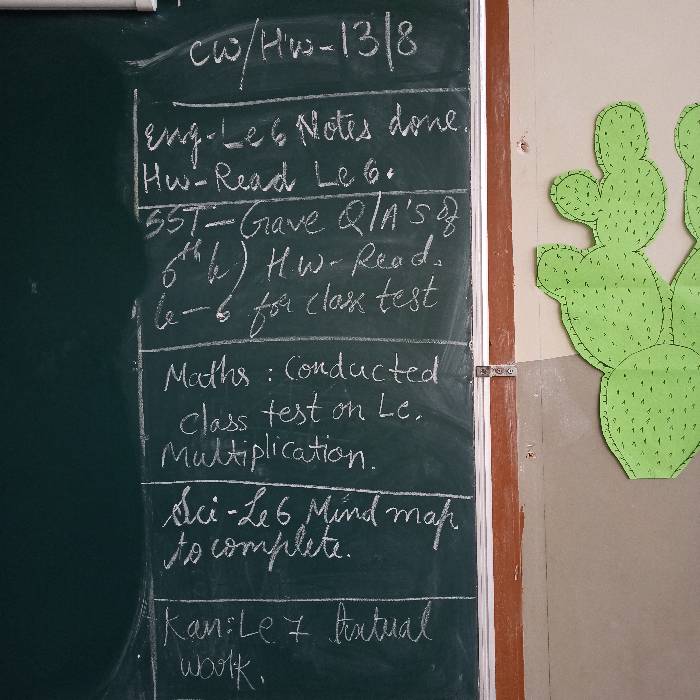 CW/HW-13/8
Eng-Le 6 Notes done.
HW-Read Le 6.
SST-Gave Q/A's of
6th le) HW-Read.
le-6 for class test
Maths : Conducted
class test on Le.
Multiplication.
Sci-Le 6 Mind map
to complete.
Kan:Le 7
work.